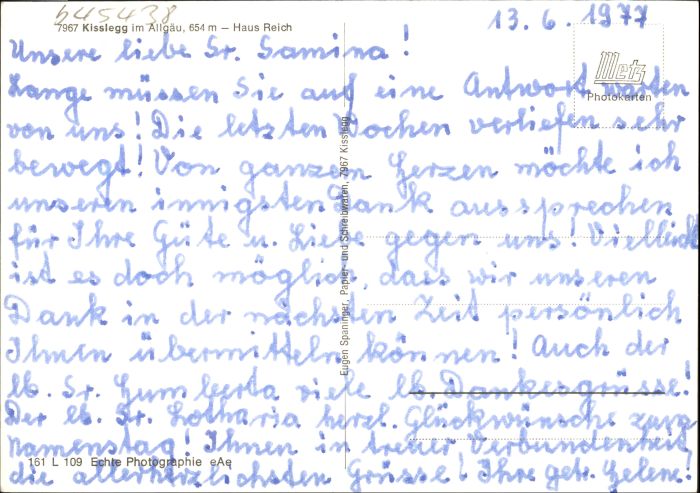 645438
13.6.1977
7967 Kisslegg im Allgäu, 654 m — Haus Reich
Unsere liebe Sr. Samina!
Lange müssen Sie auf eine Antwort warten
von uns! Die letzten Wochen verliefen sehr
bewegt! Von ganzem Herzen möchte ich
unseren innigsten Dank aussprechen
für Ihre Güte u. Liebe gegen uns! Vielleicht
ist es doch möglich, dass wir unseren
Dank in der nächsten Zeit persönlich
Ihnen übermitteln können! Auch der
lb. Sr. Humberta viele lb. Dankesgrüsse!
Der lb. Sr. Lotharia herzl. Glückwünsche zum
Namenstag! Ihnen in treuer Verbundenheit
die allerherzlichsten Grüsse! Ihre getr. Helene!
Metz
Photokarten
Eugen Spaninger, Papier- und Schreibwaren, 7967 Kisslegg
161 L 109 Echte Photographie eAe